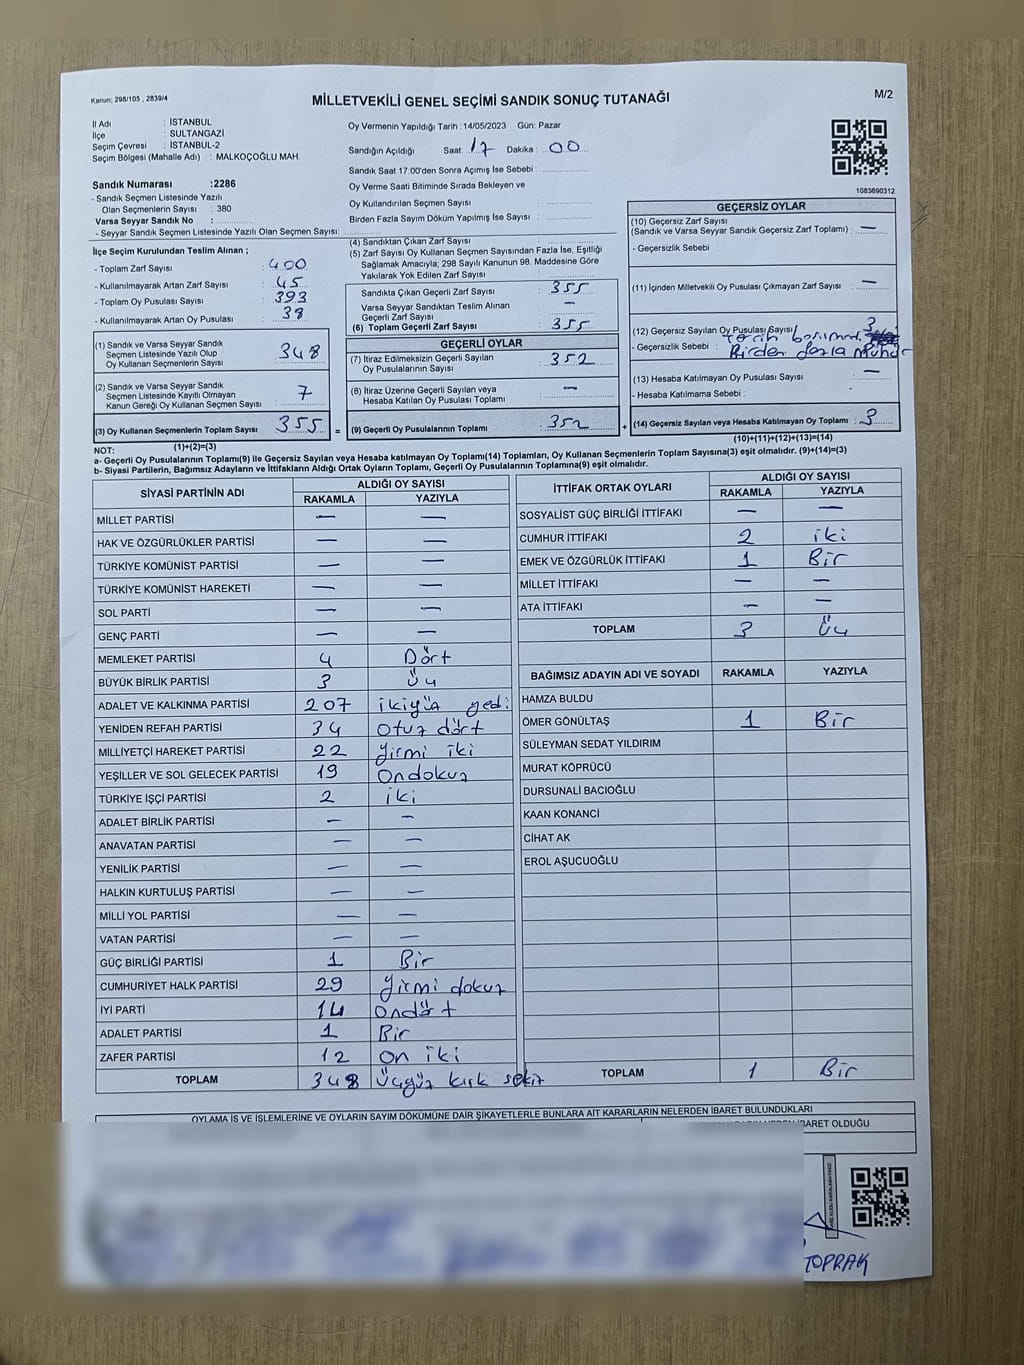 Kanun; 298/105 , 2839/4
MİLLETVEKİLİ GENEL SEÇİMİ SANDIK SONUÇ TUTANAĞI
M/2
İl Adı : İSTANBUL
İlçe : SULTANGAZİ
Seçim Çevresi : İSTANBUL-2
Seçim Bölgesi (Mahalle Adı) : MALKOÇOĞLU MAH.
Sandık Numarası :2286
- Sandık Seçmen Listesinde Yazılı
Olan Seçmenlerin Sayısı : 380
Varsa Seyyar Sandık No :
- Seyyar Sandık Seçmen Listesinde Yazılı Olan Seçmen Sayısı:
Oy Vermenin Yapıldığı Tarih :14/05/2023 Gün: Pazar
Sandığın Açıldığı Saat : 17 Dakika : 00
Sandık Saat 17:00'den Sonra Açımış İse Sebebi :
Oy Verme Saati Bitiminde Sırada Bekleyen ve
Oy Kullandırılan Seçmen Sayısı :
Birden Fazla Sayım Döküm Yapılmış İse Sayısı :
1083690312
İlçe Seçim Kurulundan Teslim Alınan ;
- Toplam Zarf Sayısı : 400
- Kullanılmayarak Artan Zarf Sayısı : 45
- Toplam Oy Pusulası Sayısı : 393
- Kullanılmayarak Artan Oy Pusulası : 38
(1) Sandık ve Varsa Seyyar Sandık
Seçmen Listesinde Yazılı Olup
Oy Kullanan Seçmenlerin Sayısı : 348
(2) Sandık ve Varsa Seyyar Sandık
Seçmen Listesinde Kayıtlı Olmayan
Kanun Gereği Oy Kullanan Seçmen Sayısı : 7
(3) Oy Kullanan Seçmenlerin Toplam Sayısı : 355 =
(1)+(2)=(3)
(4) Sandıktan Çıkan Zarf Sayısı :
(5) Zarf Sayısı Oy Kullanan Seçmen Sayısından Fazla İse, Eşitliği
Sağlamak Amacıyla; 298 Sayılı Kanunun 98. Maddesine Göre
Yakılarak Yok Edilen Zarf Sayısı :
Sandıkta Çıkan Geçerli Zarf Sayısı : 355
Varsa Seyyar Sandıktan Teslim Alınan
Geçerli Zarf Sayısı : —
(6) Toplam Geçerli Zarf Sayısı : 355
GEÇERLİ OYLAR
(7) İtiraz Edilmeksizin Geçerli Sayılan
Oy Pusulalarının Sayısı : 352
(8) İtiraz Üzerine Geçerli Sayılan veya
Hesaba Katılan Oy Pusulası Toplamı : —
(9) Geçerli Oy Pusulalarının Toplamı : 352 +
GEÇERSİZ OYLAR
(10) Geçersiz Zarf Sayısı
(Sandık ve Varsa Seyyar Sandık Geçersiz Zarf Toplamı) : —
- Geçersizlik Sebebi :
(11) İçinden Milletvekili Oy Pusulası Çıkmayan Zarf Sayısı : —
(12) Geçersiz Sayılan Oy Pusulası Sayısı : 3
- Geçersizlik Sebebi :
Birden fazla mühür
(13) Hesaba Katılmayan Oy Pusulası Sayısı : —
- Hesaba Katılmama Sebebi :
(14) Geçersiz Sayılan veya Hesaba Katılmayan Oy Toplamı : 3
(10)+(11)+(12)+(13)=(14)
NOT:
a- Geçerli Oy Pusulalarının Toplamı(9) ile Geçersiz Sayılan veya Hesaba katılmayan Oy Toplamı(14) Toplamları, Oy Kullanan Seçmenlerin Toplam Sayısına(3) eşit olmalıdır. (9)+(14)=(3)
b- Siyasi Partilerin, Bağımsız Adayların ve İttifakların Aldığı Ortak Oyların Toplamı, Geçerli Oy Pusulalarının Toplamına(9) eşit olmalıdır.
SİYASİ PARTİNİN ADI ALDIĞI OY SAYISI
RAKAMLA YAZIYLA
MİLLET PARTİSİ — —
HAK VE ÖZGÜRLÜKLER PARTİSİ — —
TÜRKİYE KOMÜNİST PARTİSİ — —
TÜRKİYE KOMÜNİST HAREKETİ — —
SOL PARTİ — —
GENÇ PARTİ — —
MEMLEKET PARTİSİ 4 Dört
BÜYÜK BİRLİK PARTİSİ 3 Üç
ADALET VE KALKINMA PARTİSİ 207 ikiyüz yedi
YENİDEN REFAH PARTİSİ 34 otuz dört
MİLLİYETÇİ HAREKET PARTİSİ 22 yirmi iki
YEŞİLLER VE SOL GELECEK PARTİSİ 19 ondokuz
TÜRKİYE İŞÇİ PARTİSİ 2 iki
ADALET BİRLİK PARTİSİ — —
ANAVATAN PARTİSİ — —
YENİLİK PARTİSİ — —
HALKIN KURTULUŞ PARTİSİ — —
MİLLİ YOL PARTİSİ — —
VATAN PARTİSİ — —
GÜÇ BİRLİĞİ PARTİSİ 1 Bir
CUMHURİYET HALK PARTİSİ 29 yirmi dokuz
İYİ PARTİ 14 ondört
ADALET PARTİSİ 1 Bir
ZAFER PARTİSİ 12 on iki
TOPLAM 348 üçyüz kırk sekiz
İTTİFAK ORTAK OYLARI ALDIĞI OY SAYISI
RAKAMLA YAZIYLA
SOSYALİST GÜÇ BİRLİĞİ İTTİFAKI — —
CUMHUR İTTİFAKI 2 iki
EMEK VE ÖZGÜRLÜK İTTİFAKI 1 Bir
MİLLET İTTİFAKI — —
ATA İTTİFAKI — —
TOPLAM 3 Üç
BAĞIMSIZ ADAYIN ADI VE SOYADI RAKAMLA YAZIYLA
HAMZA BULDU
ÖMER GÖNÜLTAŞ 1 Bir
SÜLEYMAN SEDAT YILDIRIM
MURAT KÖPRÜCÜ
DURSUNALİ BACIOĞLU
KAAN KONANCİ
CİHAT AK
EROL AŞUCUOĞLU
TOPLAM 1 Bir
OYLAMA İŞ VE İŞLEMLERİNE VE OYLARIN SAYIM DÖKÜMÜNE DAİR ŞİKAYETLERLE BUNLARA AİT KARARLARIN NELERDEN İBARET BULUNDUKLARI
İBARET OLDUĞU
TOPRAK